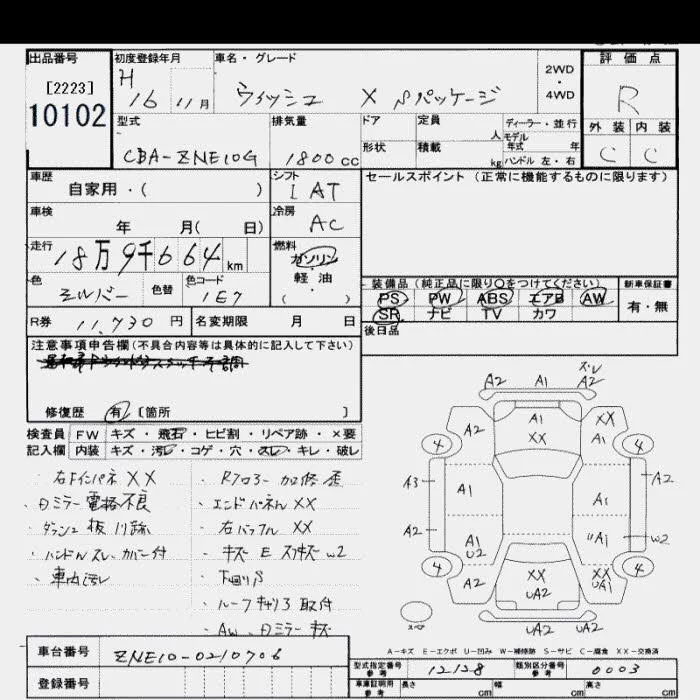 出品番号
[2223]
10102
初度登録年月
H 16 11月
車名・グレード
ウィッシュ X Sパッケージ
2WD
・
4WD
評価点
R
外装 内装
C C
型式
CBA-ZNE10G
排気量
1800cc
ドア 定員 人
形状 積載 kg
ディーラー・並行
モデル
年式 年
ハンドル 左・右
車歴
自家用・( )
シフト
IAT
セールスポイント (正常に機能するものに限ります)
車検
年 月( 日)
冷房
AC
走行
18万9千664km
燃料
ガソリン
・
軽油
( )
色
シルバー
色替
色コード
1E7
装備品(純正品に限り○をつけてください)
PS PW ABS エアB AW
SR ナビ TV カワ
新車保証書
有・無
R券
11,730円
名変期限 月 日
後日品
注意事項申告欄(不具合内容等は具体的に記入して下さい)
修復歴 有 [箇所 ]
検査員 FW キズ・飛石・ヒビ割・リペア跡・×要
記入欄 内装 キズ・汚レ・コゲ・穴・スレ・キレ・破レ
・右FインパネXX
・Dミラー電格不良
・ダッシュ板 川跡
・ハンドルスレ、カバー付
・車内汚レ
・Rフロアー加修歪
・エンドパネルXX
・右バックフルXX
・キズ E スリキズ W2
・下回りS
・ルーフキャリア取付
・AW、Dミラーキズ
A2 A1 ズレ A2
A2 A1 XX XX A1
4 4
A3 A1 A1 A2
A2 A1 U2 UA1 W2
4 4
A2 XX UA2 XX UA1
スペア
UA2 UA2
A-キズ E-エクボ U-凹み W-補修跡 S-サビ C-腐食 XX-交換済
車台番号
ZNE10-0210706
登録番号
型式指定番号
参考
12128
類別区分番号
参考
0003
車庫証明用
参考
長さ cm 幅 cm 高さ cm